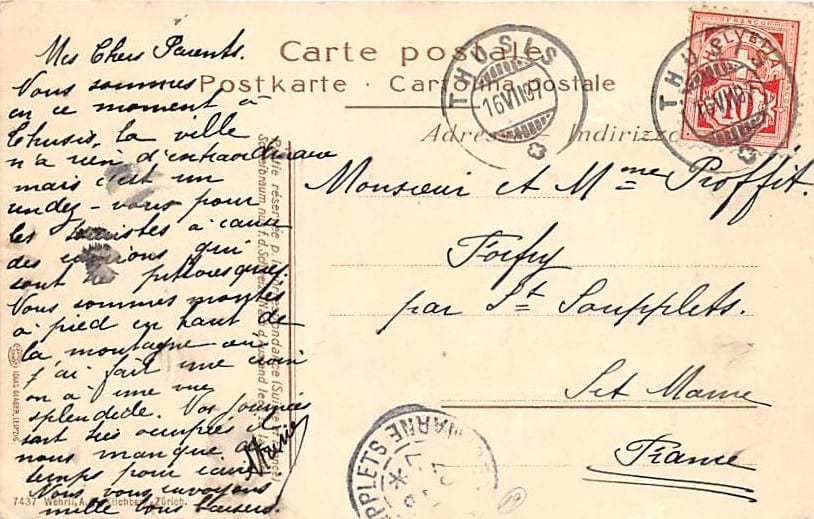 Carte postale
Postkarte · Cartolina postale
Adresse Indirizzo
THUSIS
16 VII 07
THUSIS
16 VII 07
HELVETIA
FRANCO
10
Mes Chers Parents.
Nous sommes
en ce moment à
Thusis, la ville
n'a rien d'extraordinaire
mais c'est un
rendez-vous pour
les touristes à cause
des environs qui
sont pittoresques.
Nous sommes montés
à pied en haut de
la montagne où
j'ai fait une croix
on a une vue
splendide. Vos journées
sont très occupées et
nous manque de
temps pour
Nous vous envoyons
mille bons baisers.
Monsieur et Mme Proffit.
Forfry
par St Soupplets.
Set Marne
France
PPLETS MARNE
7437 Wehrli A.G. Kilchberg-Zürich.
LOUIS GLASER, LEIPZIG